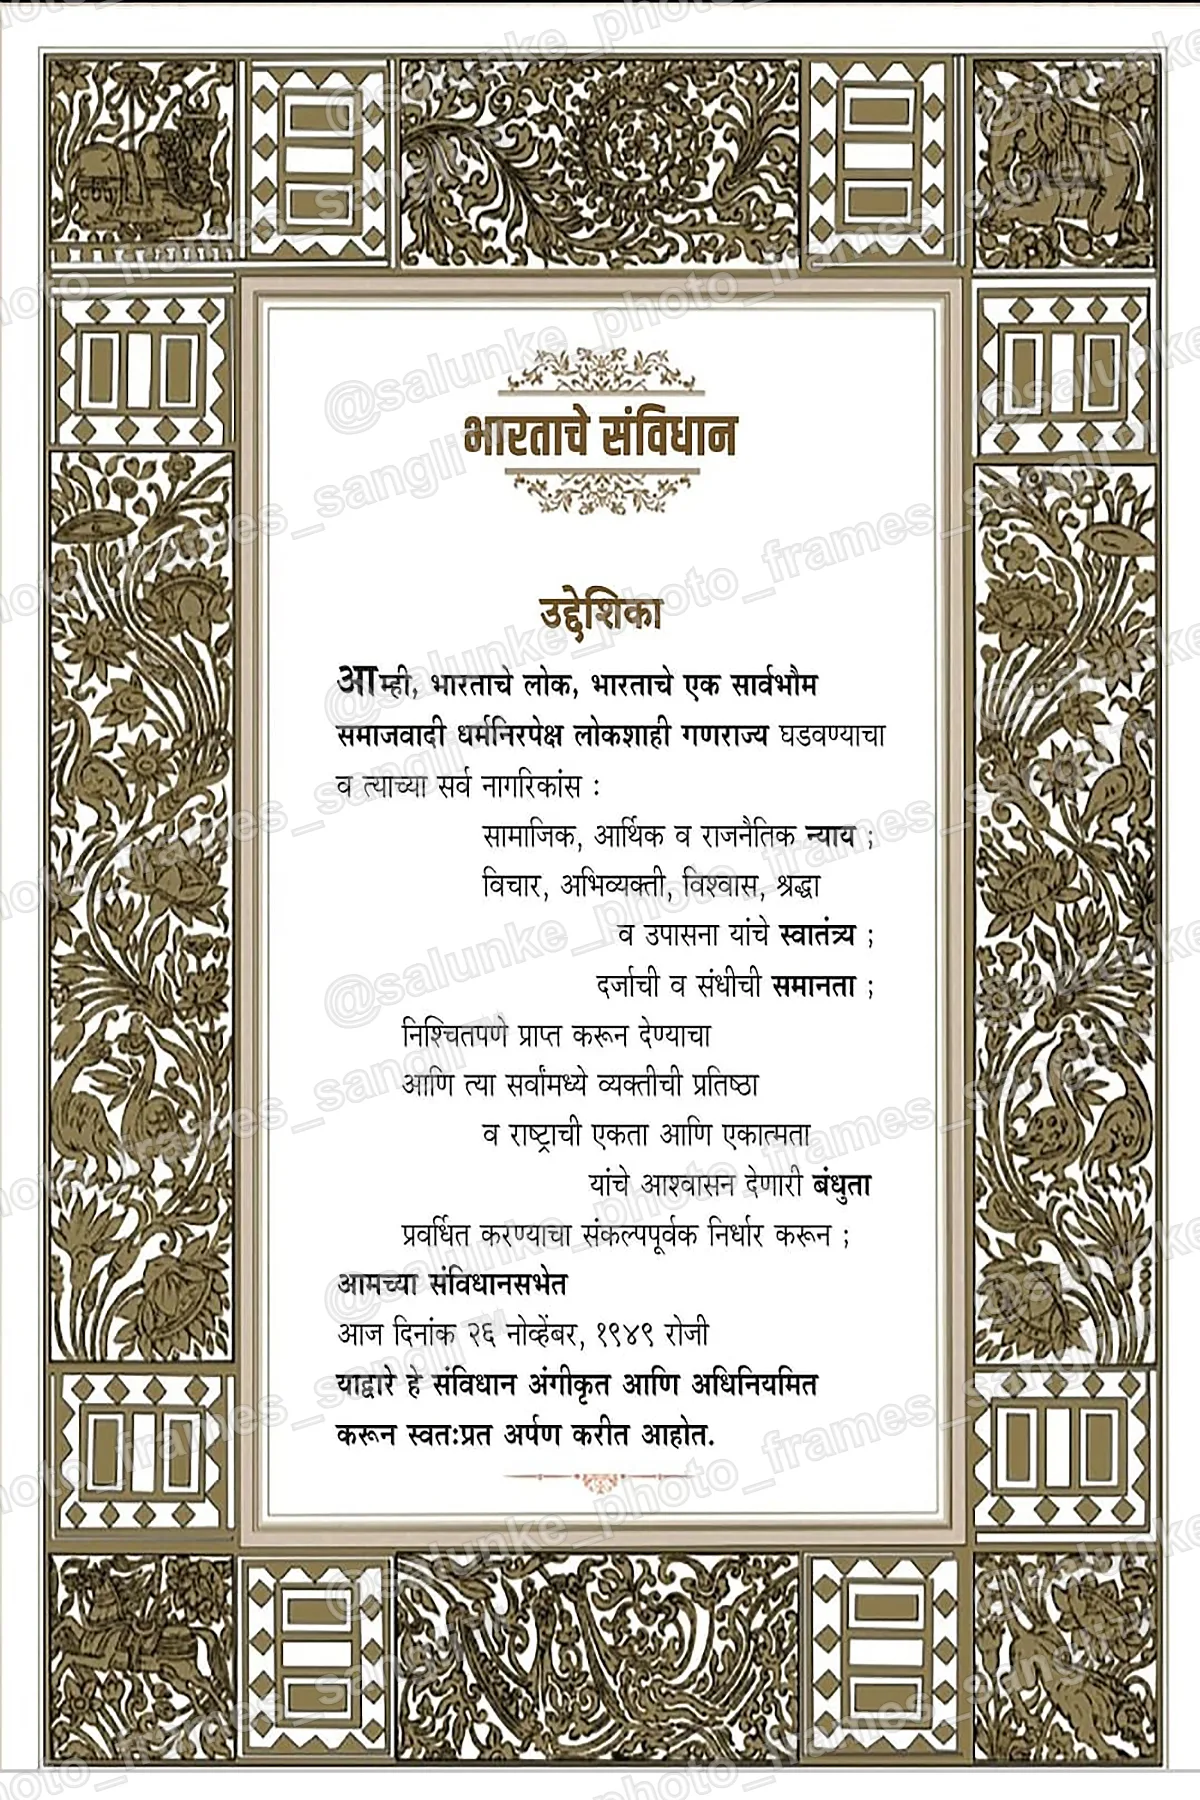 भारताचे संविधान
उद्देशिका
आम्ही, भारताचे लोक, भारताचे एक सार्वभौम
समाजवादी धर्मनिरपेक्ष लोकशाही गणराज्य घडवण्याचा
व त्याच्या सर्व नागरिकांस :
सामाजिक, आर्थिक व राजनैतिक न्याय ;
विचार, अभिव्यक्ती, विश्वास, श्रद्धा
व उपासना यांचे स्वातंत्र्य ;
दर्जाची व संधीची समानता ;
निश्चितपणे प्राप्त करून देण्याचा
आणि त्या सर्वांमध्ये व्यक्तीची प्रतिष्ठा
व राष्ट्राची एकता आणि एकात्मता
यांचे आश्वासन देणारी बंधुता
प्रवर्धित करण्याचा संकल्पपूर्वक निर्धार करून ;
आमच्या संविधानसभेत
आज दिनांक २६ नोव्हेंबर, १९४९ रोजी
याद्वारे हे संविधान अंगीकृत आणि अधिनियमित
करून स्वतःप्रत अर्पण करीत आहोत.
@salunke_photo_frames_sangli™